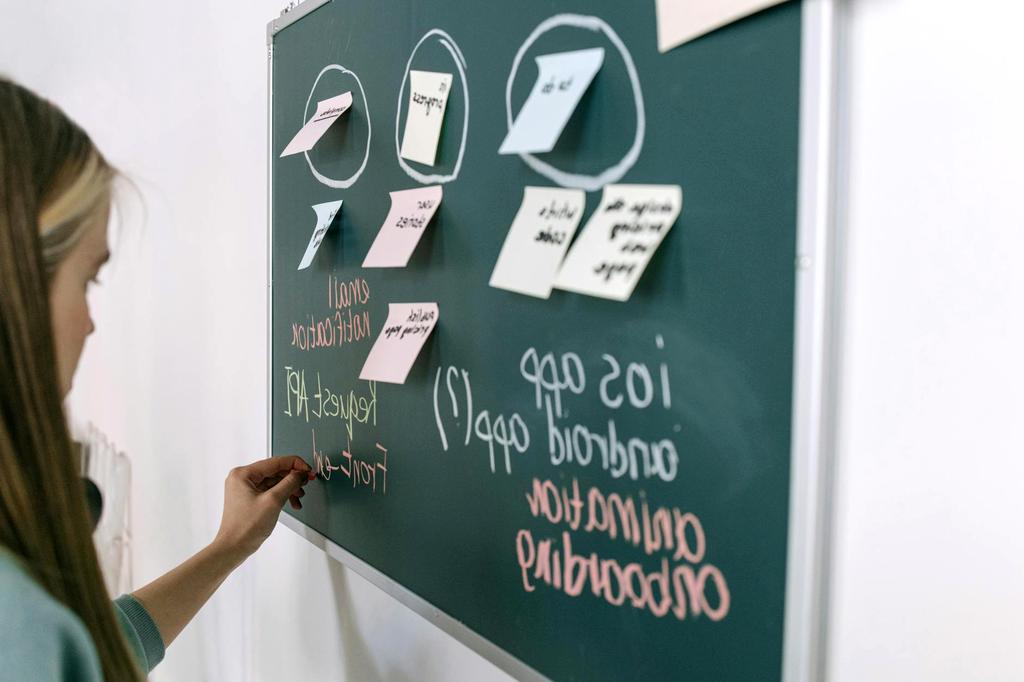 to do
pricing
main
page
write
code
ios app
android app(?)
animation
onboarding
in
progress
user
stories
publish
pricing page
email
notification
Request API
Front-end